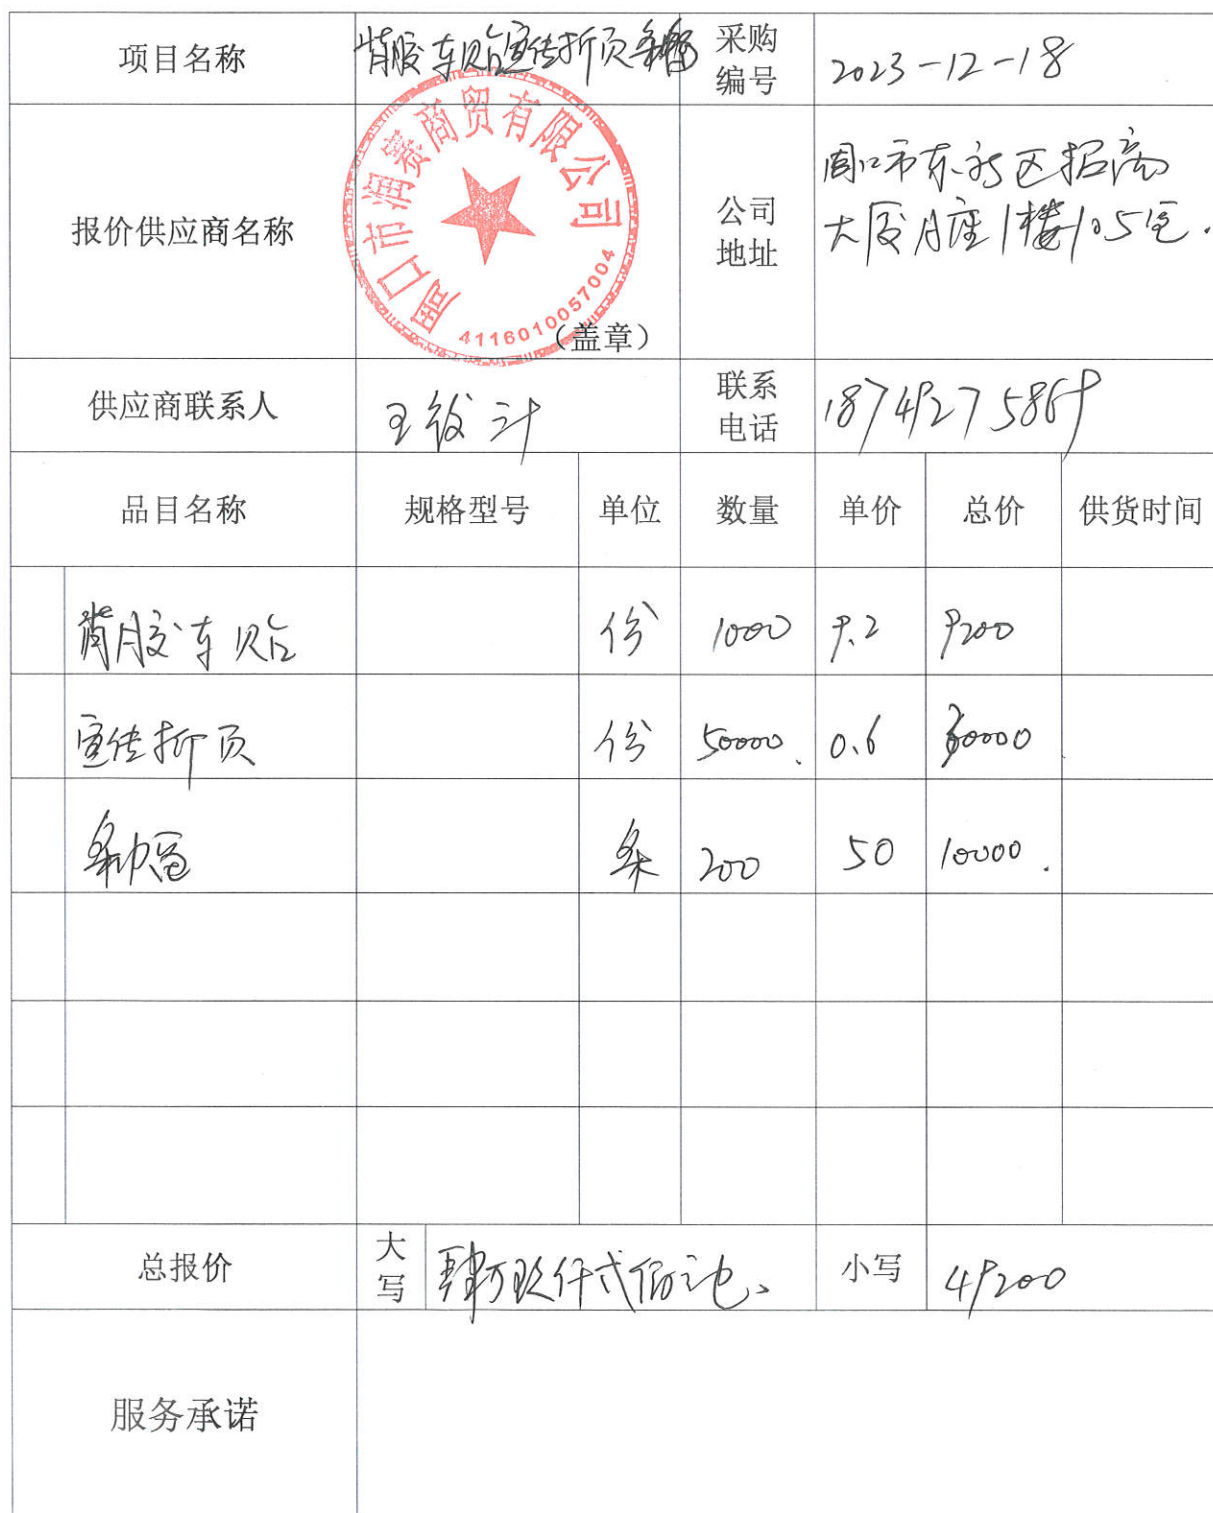 项目名称 背胶车贴宣传折页条幅 采购编号 2023-12-18
报价供应商名称 周口市润赛商贸有限公司 4116010057004 (盖章) 公司地址 周口市东新区招商
大厦A座1楼105室.
供应商联系人 联系电话 18749275869
品目名称 规格型号 单位 数量 单价 总价 供货时间
背胶车贴 份 1000 9.2 9200
宣传折页 份 50000. 0.6 30000
条幅 条 200 50 10000.
总报价 大写 肆万玖仟贰佰元 小写 49200
服务承诺